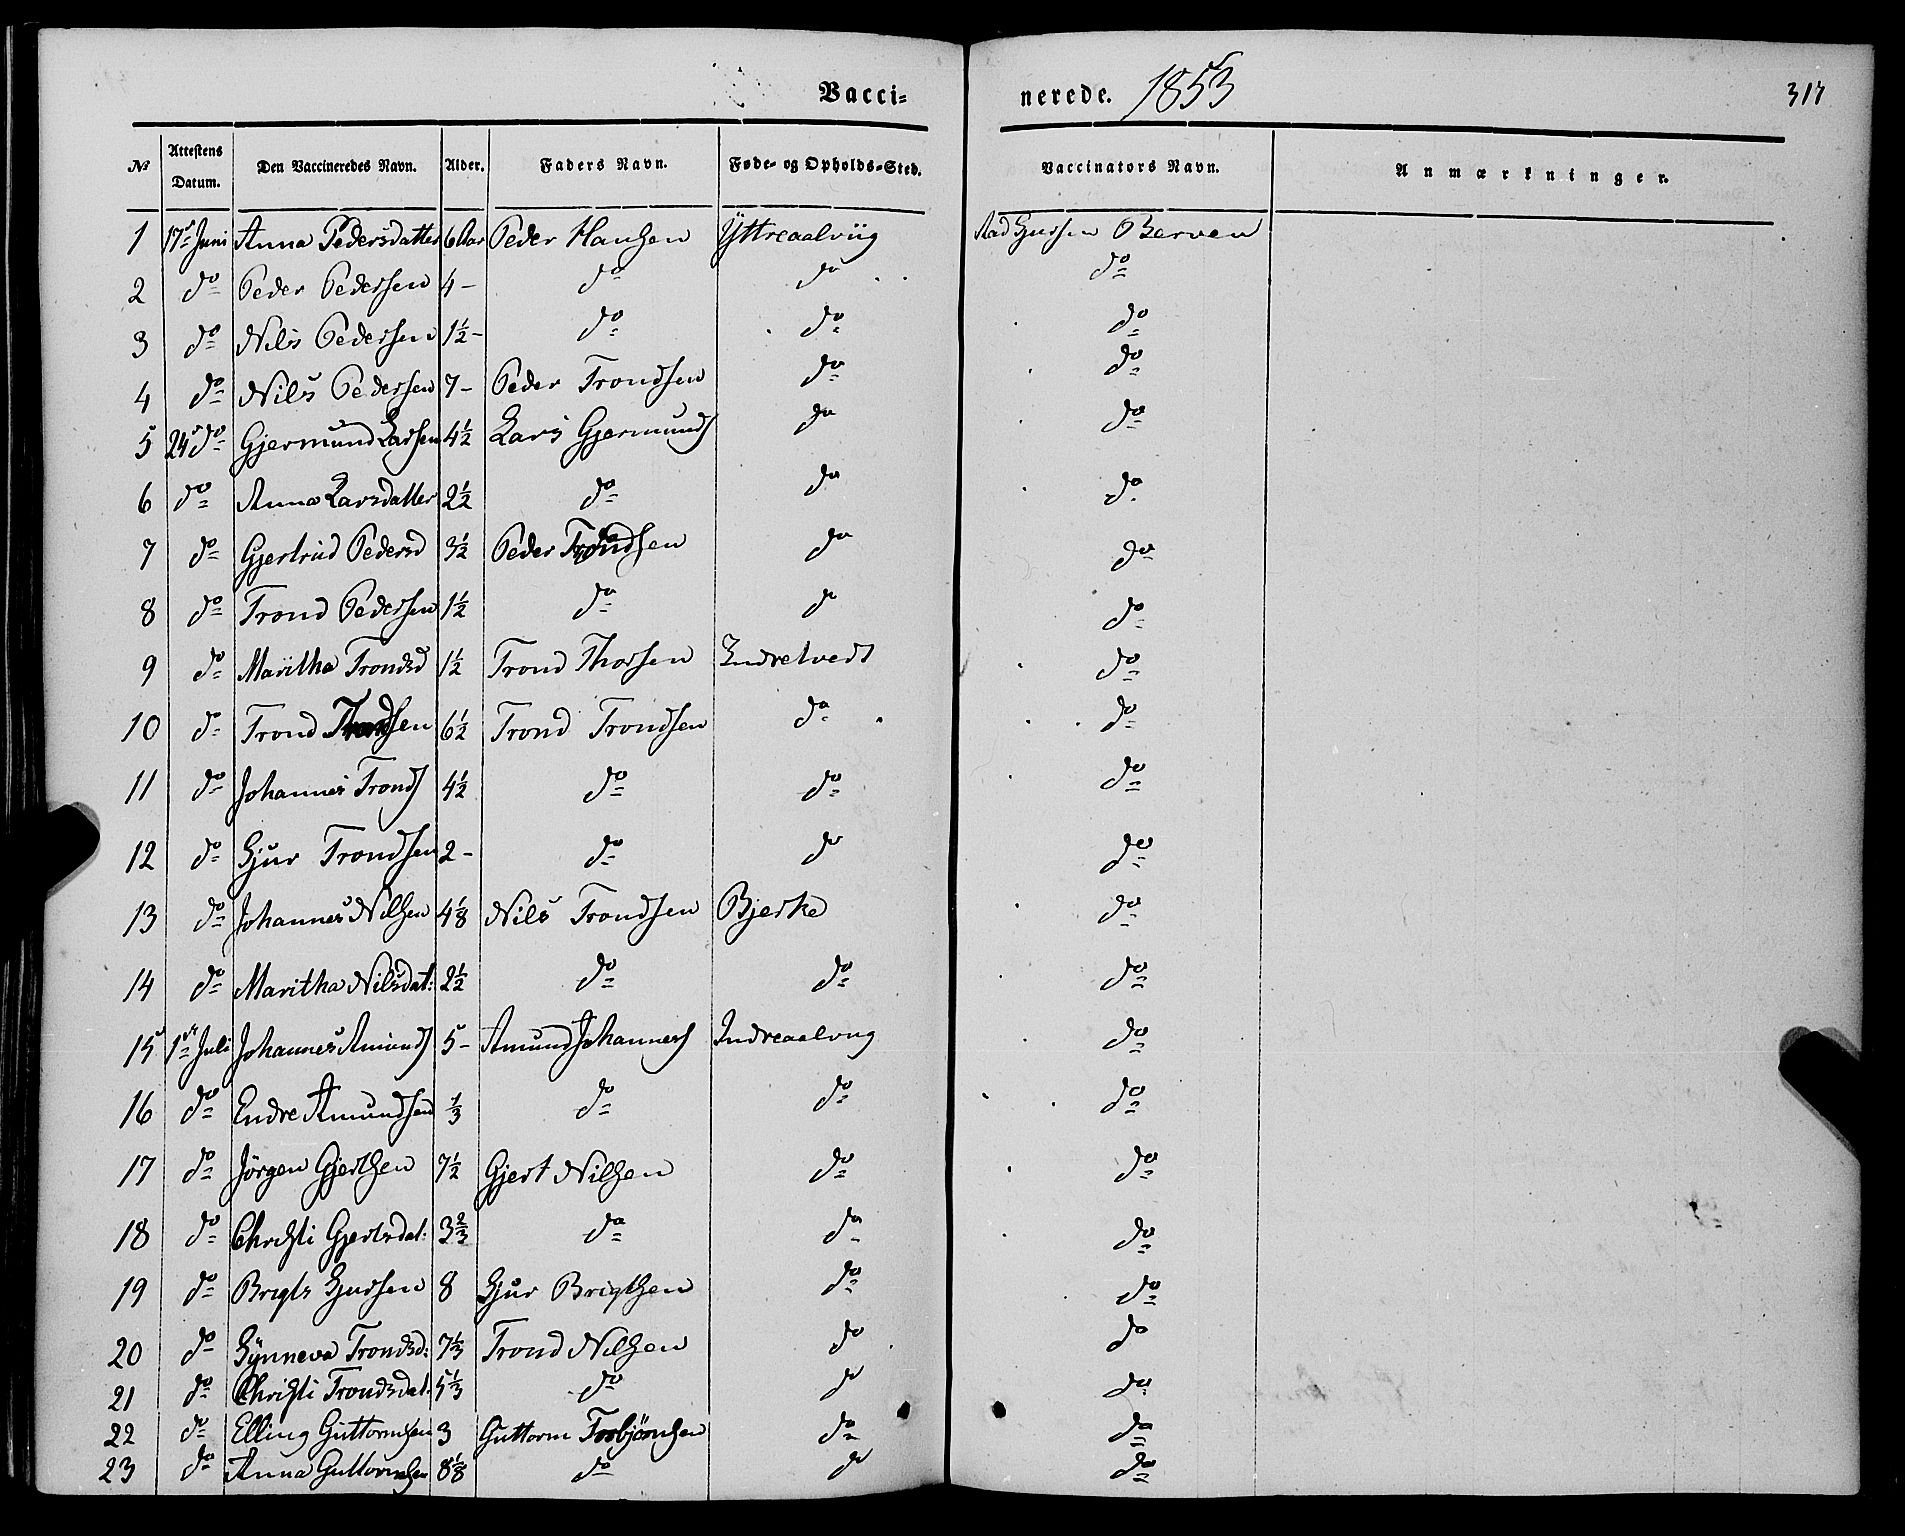 Vacci- nerede. 1853 317
№ Attestens Datum. Den Vaccineredes Navn. Alder. Faders Navn. Føde- og Opholds-Sted. Vaccinators Navn. Anmærkninger.
1 17de Juni Anna Pedersdatter 6 Aar Peder Hansen Yttreaalviig Aad Gjursen Berven
2 do Peder Pedersen 4- do do do
3 do Nils Pedersen 1½- do do do
4 do Nils Pedersen 7- Peder Trondsen do do
5 24de do Gjermund Larsen 4½ Lars Gjermunds do do
6 do Anna Larsdatter 2½ do do do
7 do Gjertrud Pedersd 3½ Peder Trondsen do do
8 do Trond Pedersen 1½ do do do
9 do Maritha Trondsd 1½ Trond Thorsen Endretvedt do
10 do Trond Trondsen 6½ Trond Trondsen do do
11 do Johannes Tronds 4½ do do do
12 do Sjur Trondsen 2- do do do
13 do Johannes Nilsen 4⅛ Nils Trondsen Bjerke do
14 do Maritha Nilsdat: 2½ do do do
15 1ste Juli Johannes Amunds 5- Amund Johannes Indreaalvug do
16 do Endre Amundsen ⅓ do do do
17 do Jörgen Gjertsen 7½ Gjert Nilsen do do
18 do Christi Gjertsdat: 3⅔ do do do
19 do Brigts Sjursen 8 Sjur Brigtsen do do
20 do Synneva Trondsd: 7⅓ Trond Nilsen do do
21 do Christi Trondsdat. 5⅓ do do do
22 do Elling Guttormsen 3 Guttorm Torbjörnsen do do
23 do Anna Guttormsen 8⅛ do do do